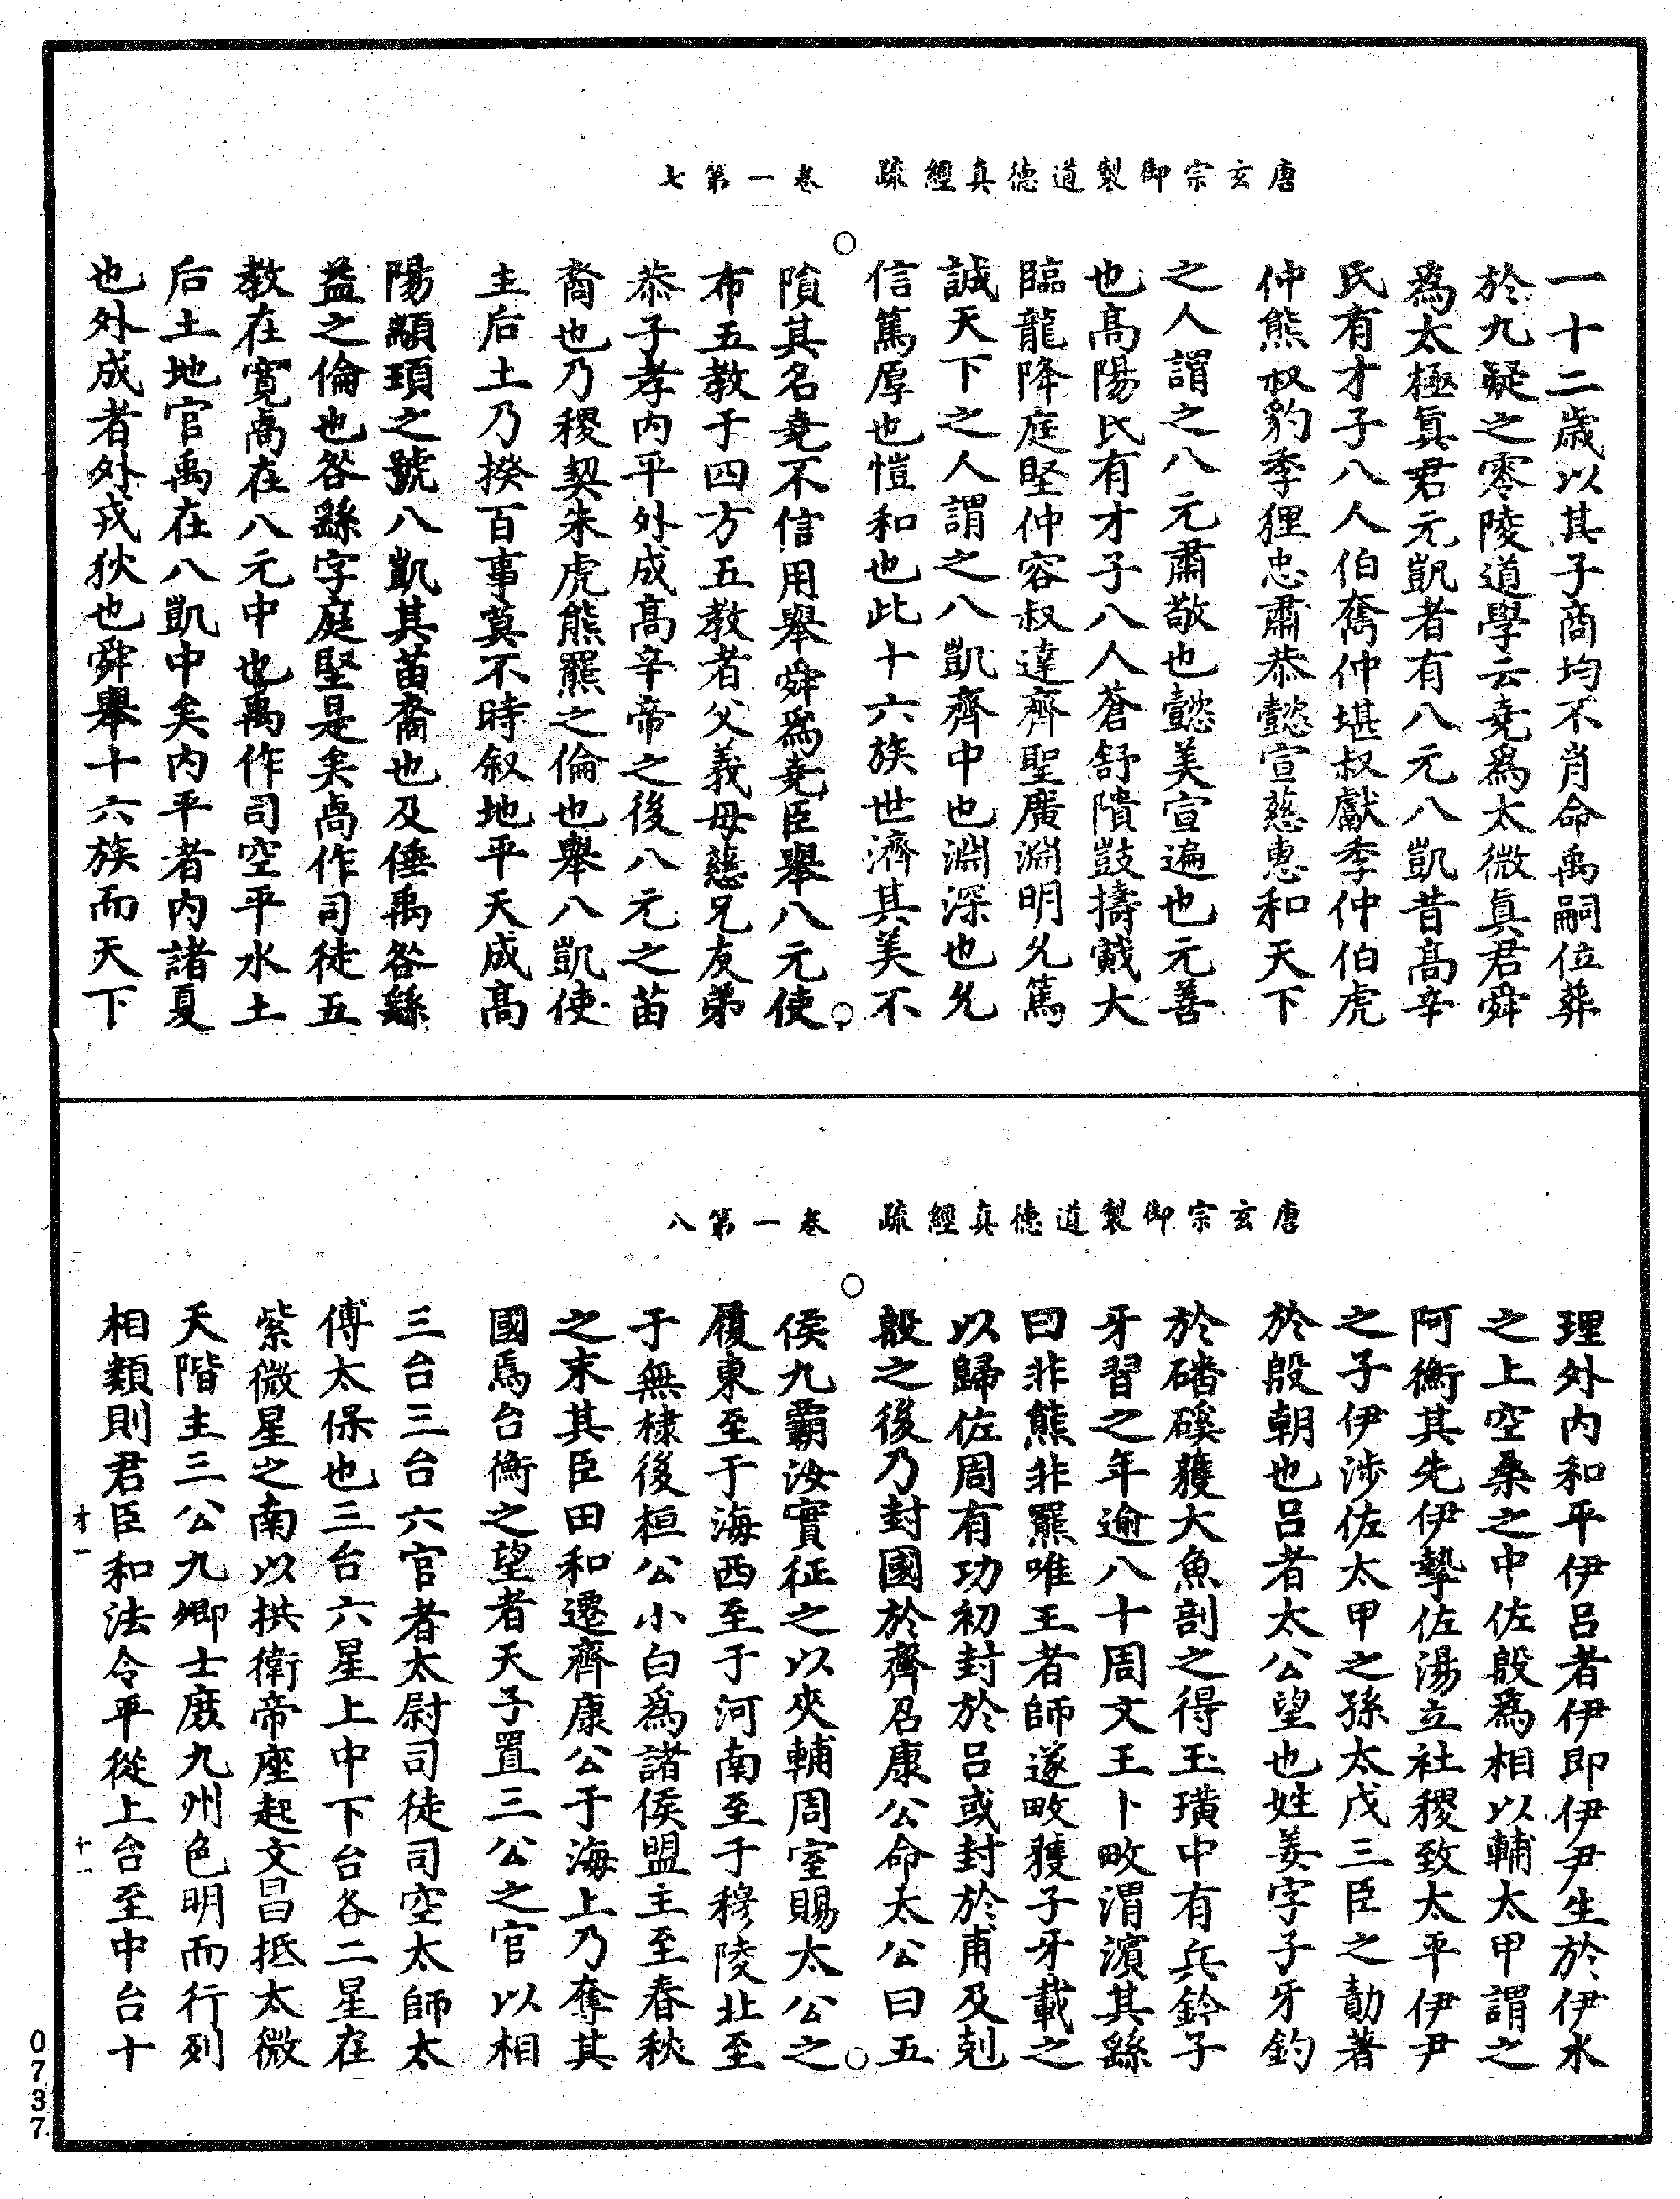 唐玄宗御製道德真經疏　卷一第七
一十二歲以其子商均不肖命禹嗣位葬
於九疑之零陵道學云堯爲太微真君舜
爲太極真君元凱者有八元八凱昔高辛
氏有才子八人伯奮仲堪叔獻季仲伯虎
仲熊叔豹季狸忠肅恭懿宣慈惠和天下
之人謂之八元肅敬也懿美宣遍也元善
也高陽氏有才子八人蒼舒隤敱擣戭大
臨龍降庭堅仲容叔達齊聖廣淵明允篤
誠天下之人謂之八凱齊中也淵深也允
信篤厚也愷和也此十六族世濟其美不
隕其名堯不信用舉舜爲堯臣舉八元使
布五教于四方五教者父義母慈兄友弟
恭子孝内平外成高辛帝之後八元之苗
裔也乃稷契朱虎熊羆之倫也舉八凱使
主后土乃揆百事莫不時叙地平天成高
陽顓頊之號八凱其苗裔也及倕禹咎繇
益之倫也咎繇字庭堅是矣卨作司徒五
教在寬卨在八元中也禹作司空平水土
后土地官禹在八凱中矣内平者内諸夏
也外成者外戎狄也舜舉十六族而天下
唐玄宗御製道德真經疏　卷一第八
理外内和平伊吕者伊即伊尹生於伊水
之上空桑之中佐殷爲相以輔太甲謂之
阿衡其先伊摯佐湯立社稷致太平伊尹
之子伊涉佐太甲之孫太戊三臣之勣著
於殷朝也吕者太公望也姓姜字子牙釣
於磻磎獲大魚剖之得玉璜中有兵鈐子
牙習之年逾八十周文王卜畋渭濱其繇
曰非熊非羆唯王者師遂畋獲子牙載之
以歸佐周有功初封於吕或封於甫及剋
殷之後乃封國於齊召康公命太公曰五
侯九霸汝實征之以夾輔周室賜太公之
履東至于海西至于河南至于穆陵北至
于無棣後桓公小白爲諸侯盟主至春秋
之末其臣田和遷齊康公于海上乃奪其
國焉台衡之望者天子置三公之官以相
三台三台六官者太尉司徒司空太師太
傅太保也三台六星上中下台各二星在
紫微星之南以拱衛帝座起文昌抵太微
天階主三公九卿士庶九州色明而行列
相類則君臣和法令平從上台至中台十
才一　十一
0737